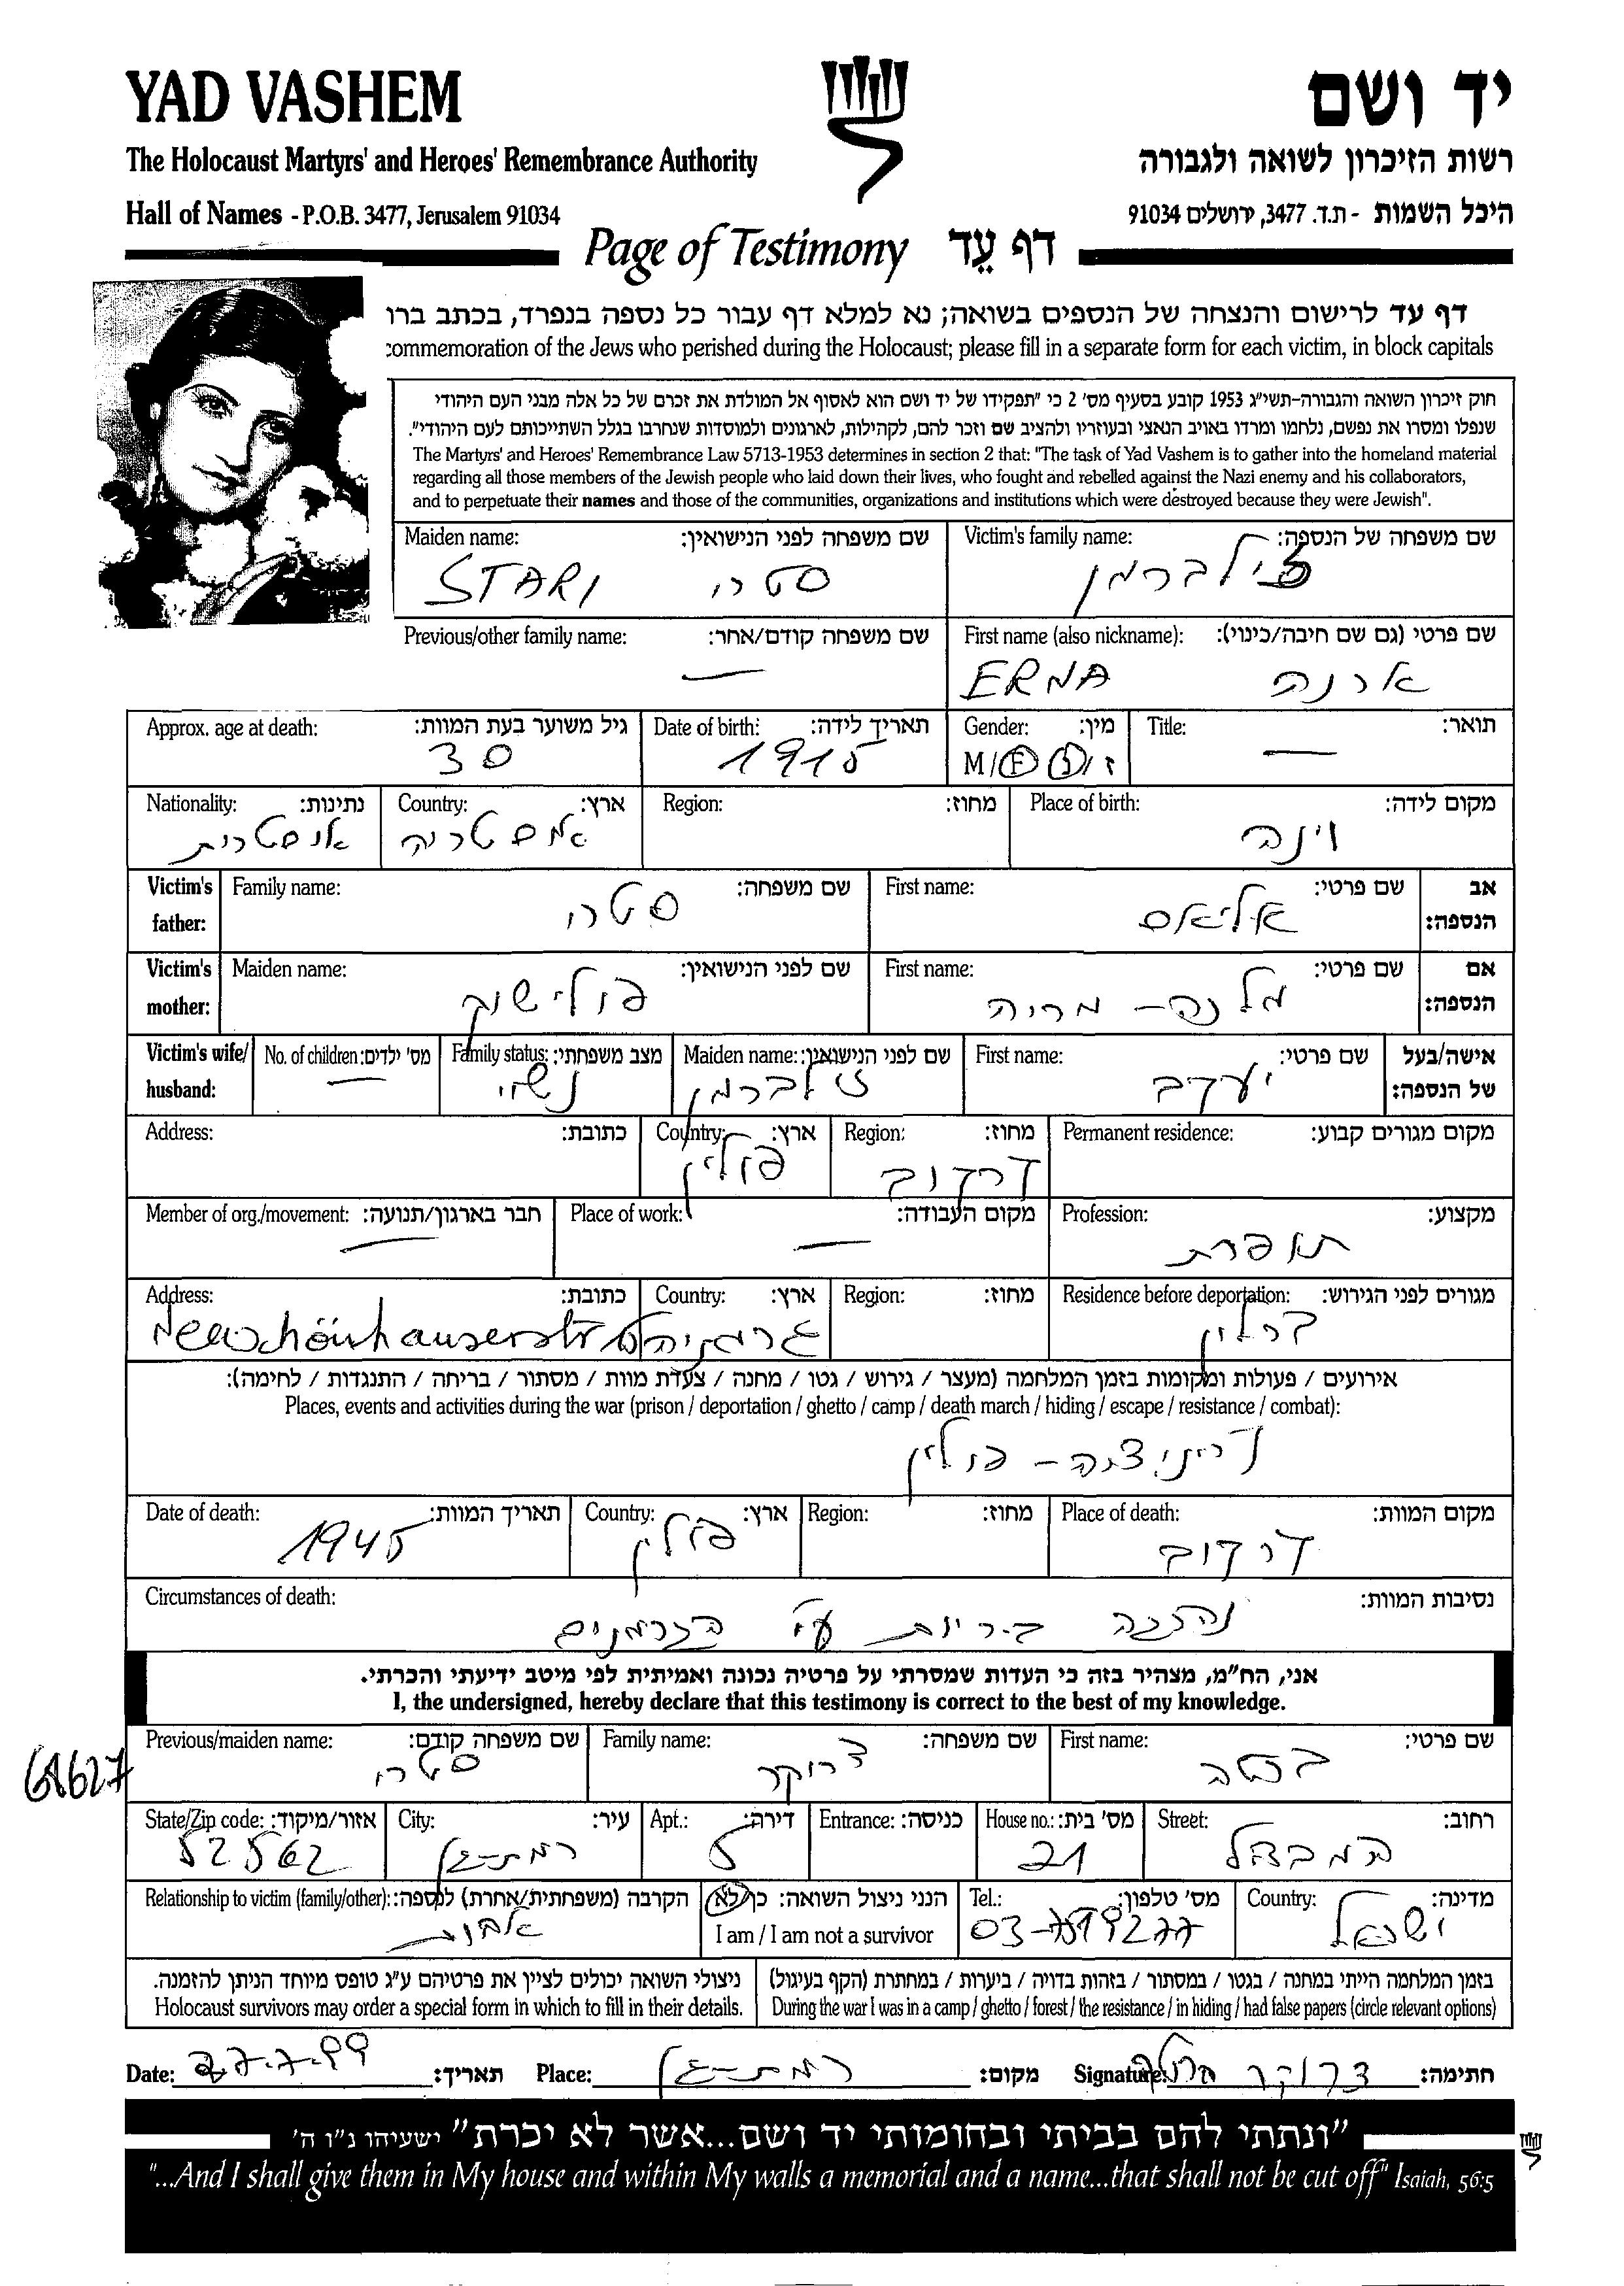 YAD VASHEM
יד ושם
The Holocaust Martyrs' and Heroes' Remembrance Authority
רשות הזיכרון לשואה ולגבורה
Hall of Names - P.O.B. 3477, Jerusalem 91034
היכל השמות - ת.ד. 3477, ירושלים 91034
Page of Testimony דף עֵד
דף עד לרישום והנצחה של הנספים בשואה; נא למלא דף עבור כל נספה בנפרד, בכתב ברו
commemoration of the Jews who perished during the Holocaust; please fill in a separate form for each victim, in block capitals
חוק זיכרון השואה והגבורה-תשי"ג 1953 קובע בסעיף מס' 2 כי "תפקידו של יד ושם הוא לאסוף אל המולדת את זכרם של כל אלה מבני העם היהודי
שנפלו ומסרו את נפשם, נלחמו ומרדו באויב הנאצי ובעוזריו ולהציב שם וזכר להם, לקהילות, לארגונים ולמוסדות שנחרבו בגלל השתייכותם לעם היהודי".
The Martyrs' and Heroes' Remembrance Law 5713-1953 determines in section 2 that: "The task of Yad Vashem is to gather into the homeland material
regarding all those members of the Jewish people who laid down their lives, who fought and rebelled against the Nazi enemy and his collaborators,
and to perpetuate their names and those of the communities, organizations and institutions which were destroyed because they were Jewish".
Maiden name: שם משפחה לפני הנישואין: Victim's family name: שם משפחה של הנספה:
STARI סטרי זילברמן
Previous/other family name: שם משפחה קודם/אחר: First name (also nickname): שם פרטי (גם שם חיבה/כינוי):
— ERNA ארנה
Approx. age at death: גיל משוער בעת המוות: Date of birth: תאריך לידה: Gender: מין: Title: תואר:
30 1915 M/F ז/נ —
Nationality: נתינות: Country: ארץ: Region: מחוז: Place of birth: מקום לידה:
אוסטרית אוסטריה וינה
Victim's father: Family name: שם משפחה: First name: שם פרטי: אב הנספה:
סטרי אליאס
Victim's mother: Maiden name: שם לפני הנישואין: First name: שם פרטי: אם הנספה:
פולישוק מלנה - מריה
Victim's wife/ husband: No. of children: מס' ילדים: Family status: מצב משפחתי: Maiden name: שם לפני הנישואין: First name: שם פרטי: אישה/בעל של הנספה:
— נשוי זילברמן יעקב
Address: כתובת: Country: ארץ: Region: מחוז: Permanent residence: מקום מגורים קבוע:
פולין קרקוב
Member of org./movement: חבר בארגון/תנועה: Place of work: מקום העבודה: Profession: מקצוע:
— — תופרת
Address: כתובת: Country: ארץ: Region: מחוז: Residence before deportation: מגורים לפני הגירוש:
Neuschönhauserstr גרמניה ברלין
אירועים / פעולות ומקומות בזמן המלחמה (מעצר / גירוש / גטו / מחנה / צעדת מוות / מסתור / בריחה / התנגדות / לחימה):
Places, events and activities during the war (prison / deportation / ghetto / camp / death march / hiding / escape / resistance / combat):
קריניצה - פולין
Date of death: תאריך המוות: Country: ארץ: Region: מחוז: Place of death: מקום המוות:
1945 פולין קרקוב
Circumstances of death: נסיבות המוות:
נהרגה ביריות ע"י הגרמנים
אני, הח"מ, מצהיר בזה כי העדות שמסרתי על פרטיה נכונה ואמיתית לפי מיטב ידיעתי והכרתי.
I, the undersigned, hereby declare that this testimony is correct to the best of my knowledge.
Previous/maiden name: שם משפחה קודם: Family name: שם משפחה: First name: שם פרטי:
סטרי צרוקר
State/Zip code: אזור/מיקוד: City: עיר: Apt.: דירה: Entrance: כניסה: House no.: מס' בית: Street: רחוב:
52562 רמת-גן 5 21 המבטל
Relationship to victim (family/other): הקרבה (משפחתית/אחרת) לנספה: הנני ניצול השואה: כן/לא Tel.: מס' טלפון: Country: מדינה:
אחות I am / I am not a survivor ישראל
ניצולי השואה יכולים לציין את פרטיהם ע"ג טופס מיוחד הניתן להזמנה. בזמן המלחמה הייתי במחנה / בגטו / במסתור / בזהות בדויה / ביערות / במחתרת (הקף בעיגול)
Holocaust survivors may order a special form in which to fill in their details. During the war I was in a camp / ghetto / forest / the resistance / in hiding / had false papers (circle relevant options)
Date: 27.7.99 תאריך: Place: רמת-גן מקום: Signature: צרוקר חתימה:
"ונתתי להם בביתי ובחומותי יד ושם...אשר לא יכרת" ישעיהו נ"ו ה'
"...And I shall give them in My house and within My walls a memorial and a name...that shall not be cut off" Isaiah, 56:5